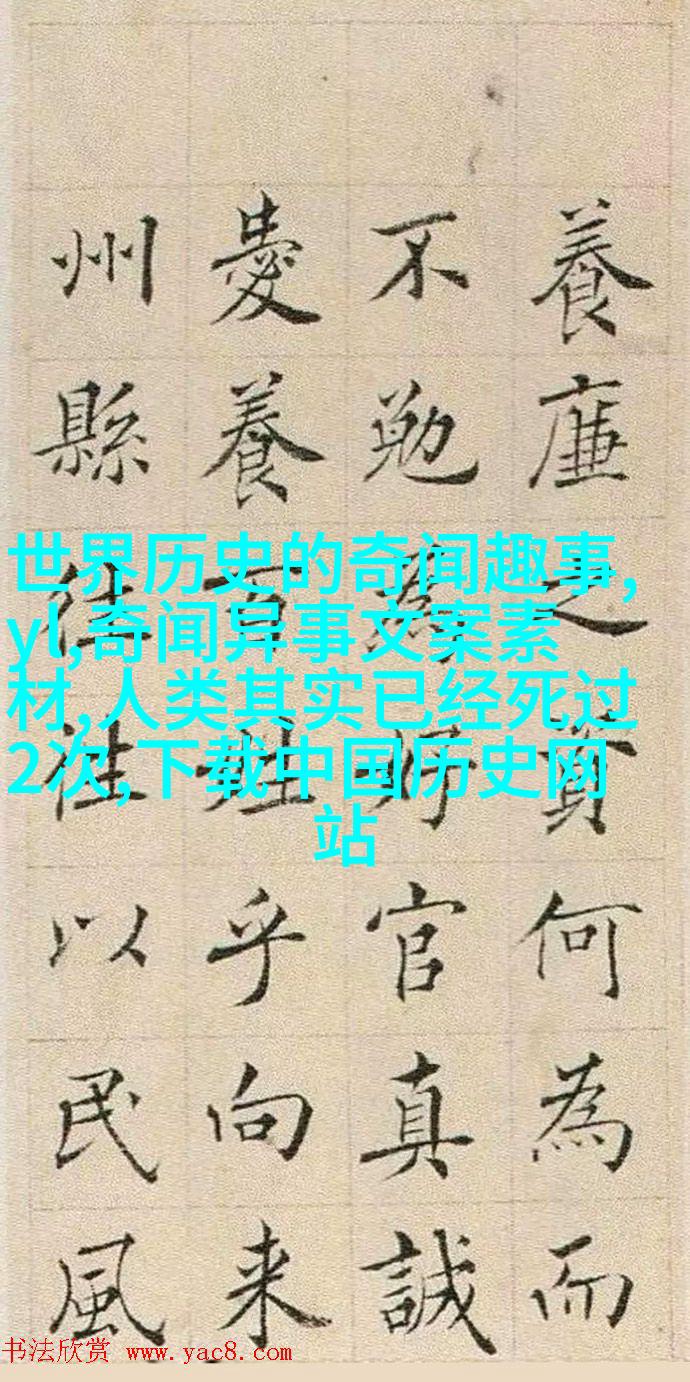 養廉之資何為而
不勉為好官真誠
愛養百姓乎向来
州縣往往以民風
世界历史的奇闻趣事,
yl,奇闻异事文案素
材,人类其实已经死过
2次,下载中国历史网
站
书法欣赏 www.yac8.com